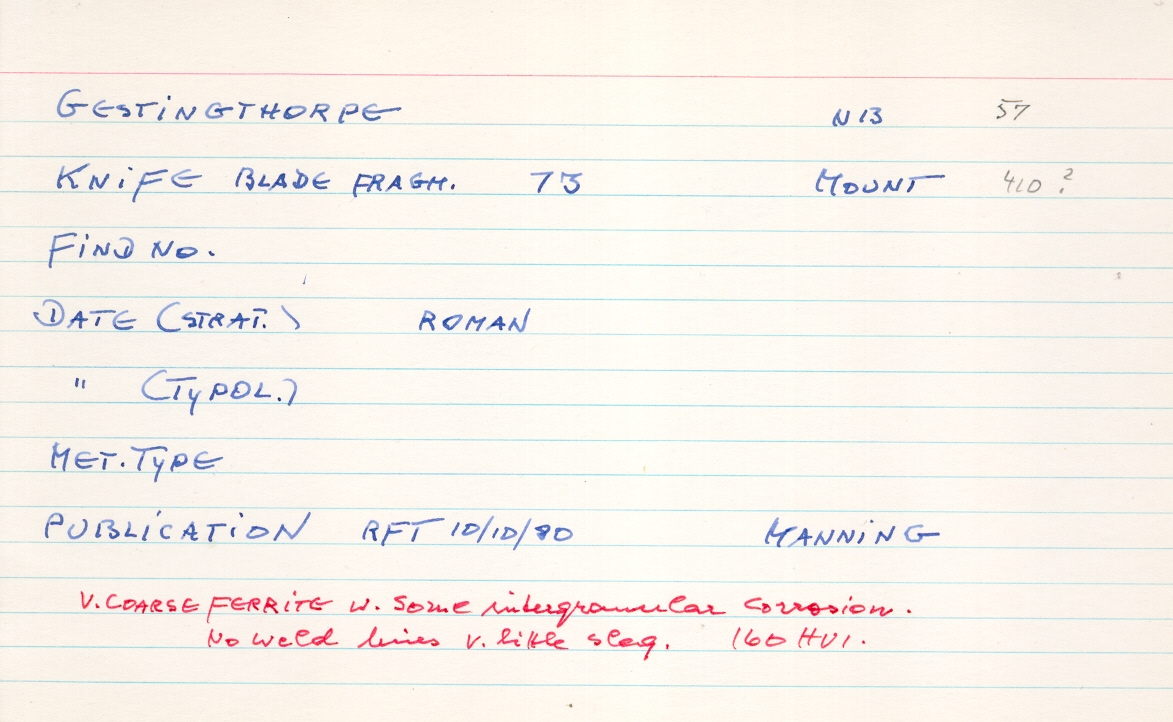 GESTINGTHORPE N13 57
KNIFE BLADE FRAGM. 73 MOUNT 410 ?
FIND NO.
DATE (STRAT.) ROMAN
" (TYPOL.)
MET. TYPE
PUBLICATION RFT 10/10/80 MANNING
V. COARSE FERRITE W. Some intergranular corrosion.
No weld lines v. little slag. 160 HV1.